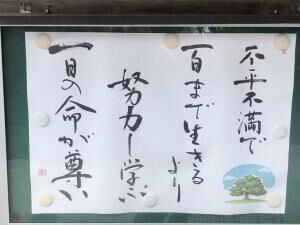 不平不満で
百まで生きる
より
努力し学ぶ
一日の命が尊い